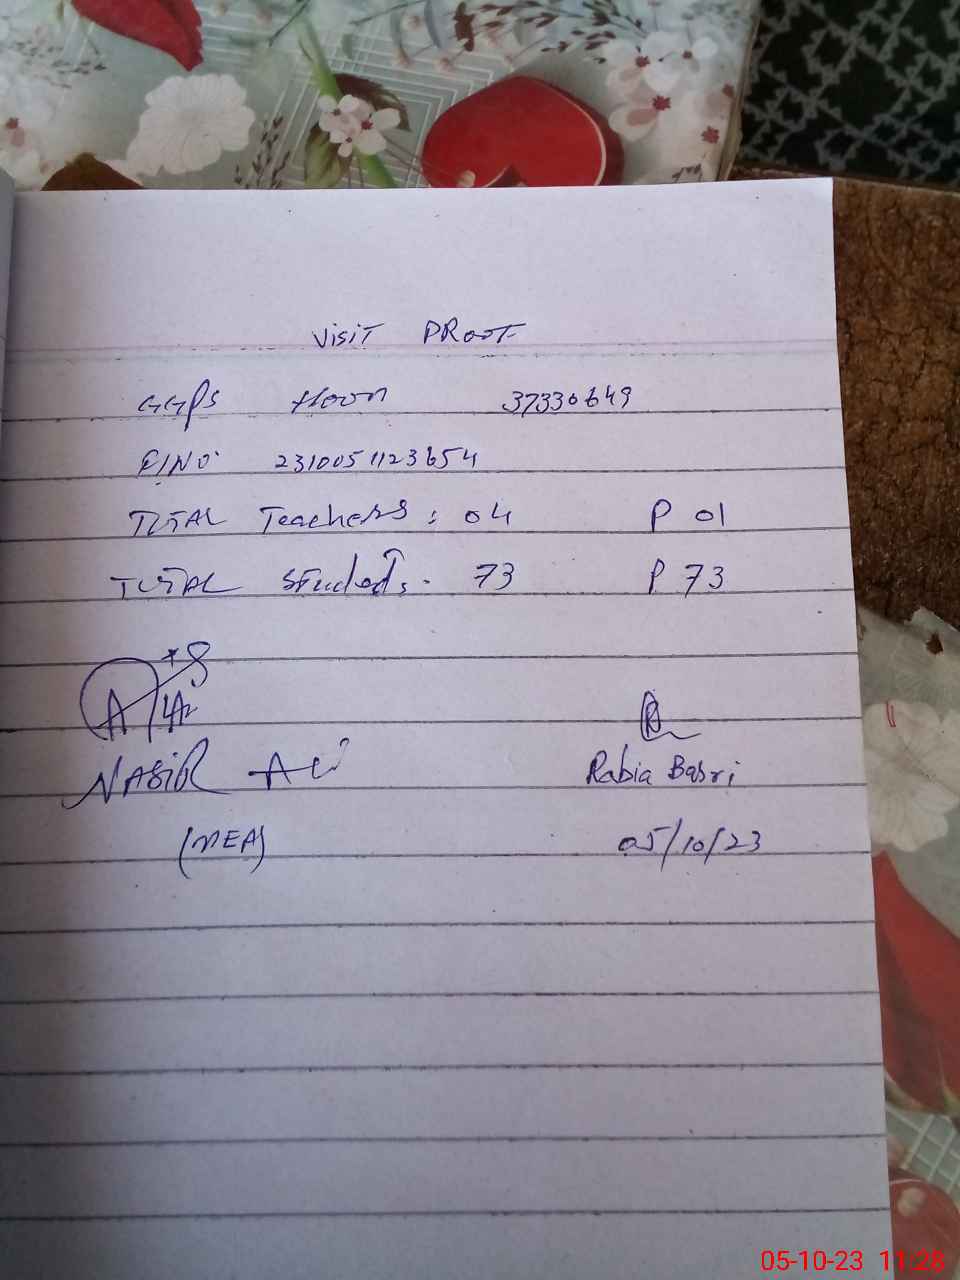 Visit PRoof
GGPS Hoon 37330649
E/NO: 2310051123654
TOTAL Teachers: 04 P 01
TOTAL Students. 73 P 73
NASIR Ali
Rabia Basri
(MEA)
05/10/23
05-10-23 11:28